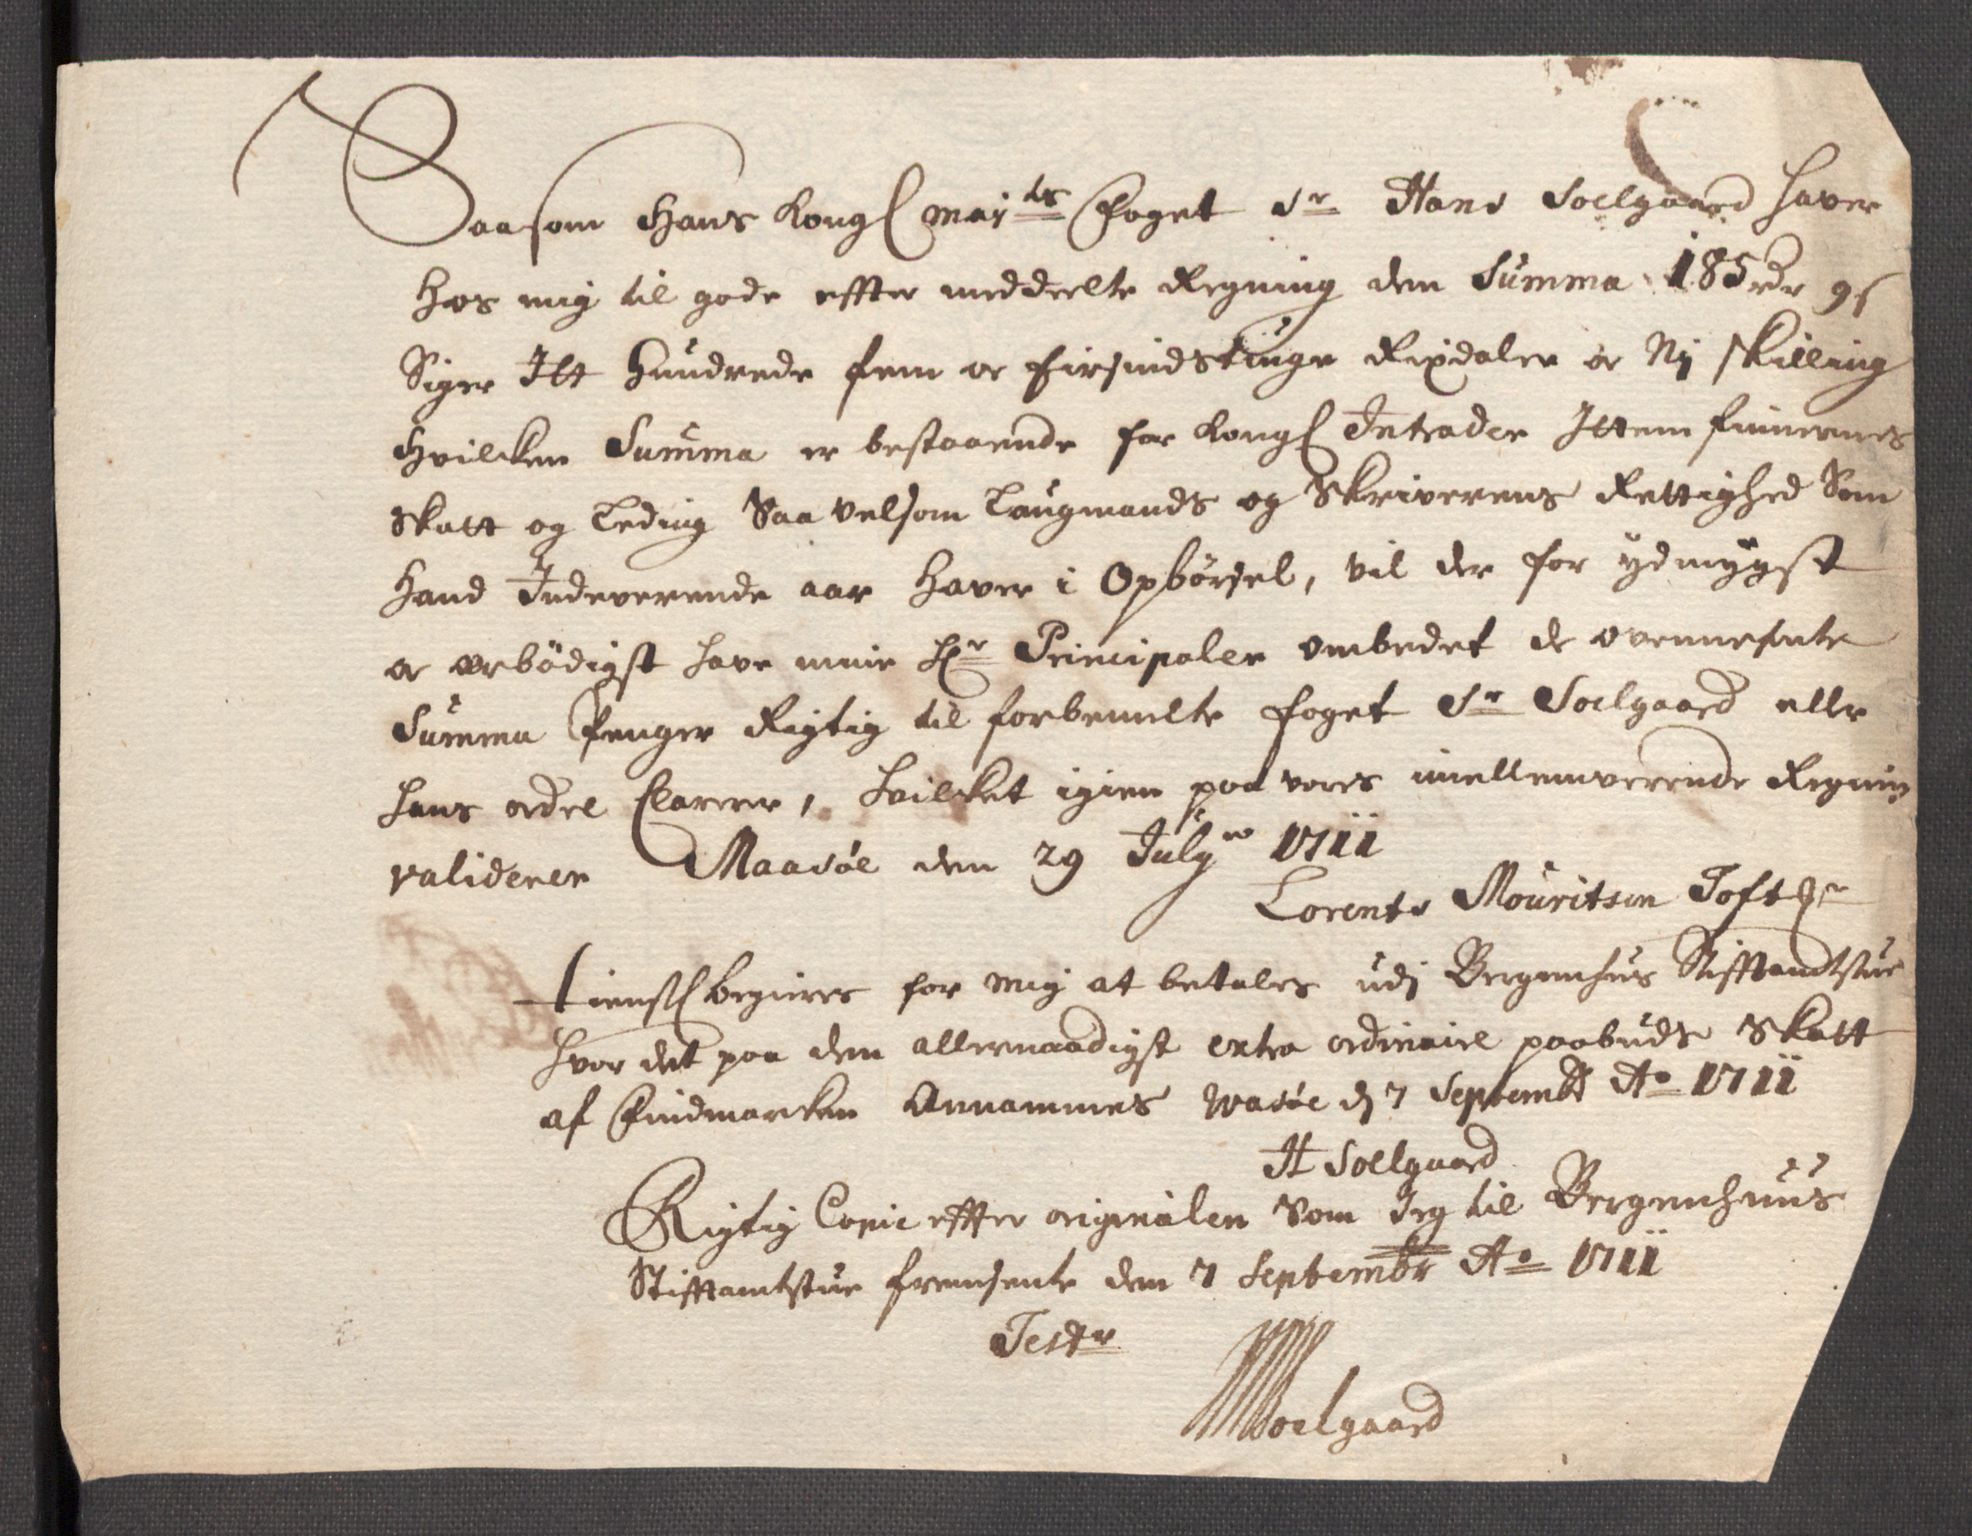 Saasom Hans Kongl May:ts Foget Sr Hans Soelgaard haver
Hos mig til gode effter meddeelte Regning den Summa 185 rdr 9 s
Siger Itt Hundrede fem oc firsindstiuge Rixdaler oc Nij skilling
Hvilcken Summa er bestaaende for Kongl Intrader Ittem finnernes
Skatt og Leding Saavelsom Laugmands og Skriverens Rettighed Som
Hand Indeverende aar Haver i Opbörsel, vil der for ydmygst
oc ærbödigst have min Hr Principaler ombedet de ovennefnte
Summa Penger Rigtig til forbemelte foget Sr Soelgaard eller
hans ordre Clarerer, Hvilcket igien paa vores imellemverende Regning
validerer Maasöe den 29 July 1711
Lorents Mouritsen Toft
tienstl begieres for mig at betales udj Bergenhus Stifftamtstue
hvor det paa den allernaadigst extra ordinaire paabudt Skatt
af Findmarcken Annammes Wasöe dj 7 Septembr Ao 1711
H Soelgaard
Rigtig Copie effter originalen Som Jeg til Bergenhuus
Stifftamtstue fremsente den 7 Septembr Ao 1711
Tester
HSoelgaard